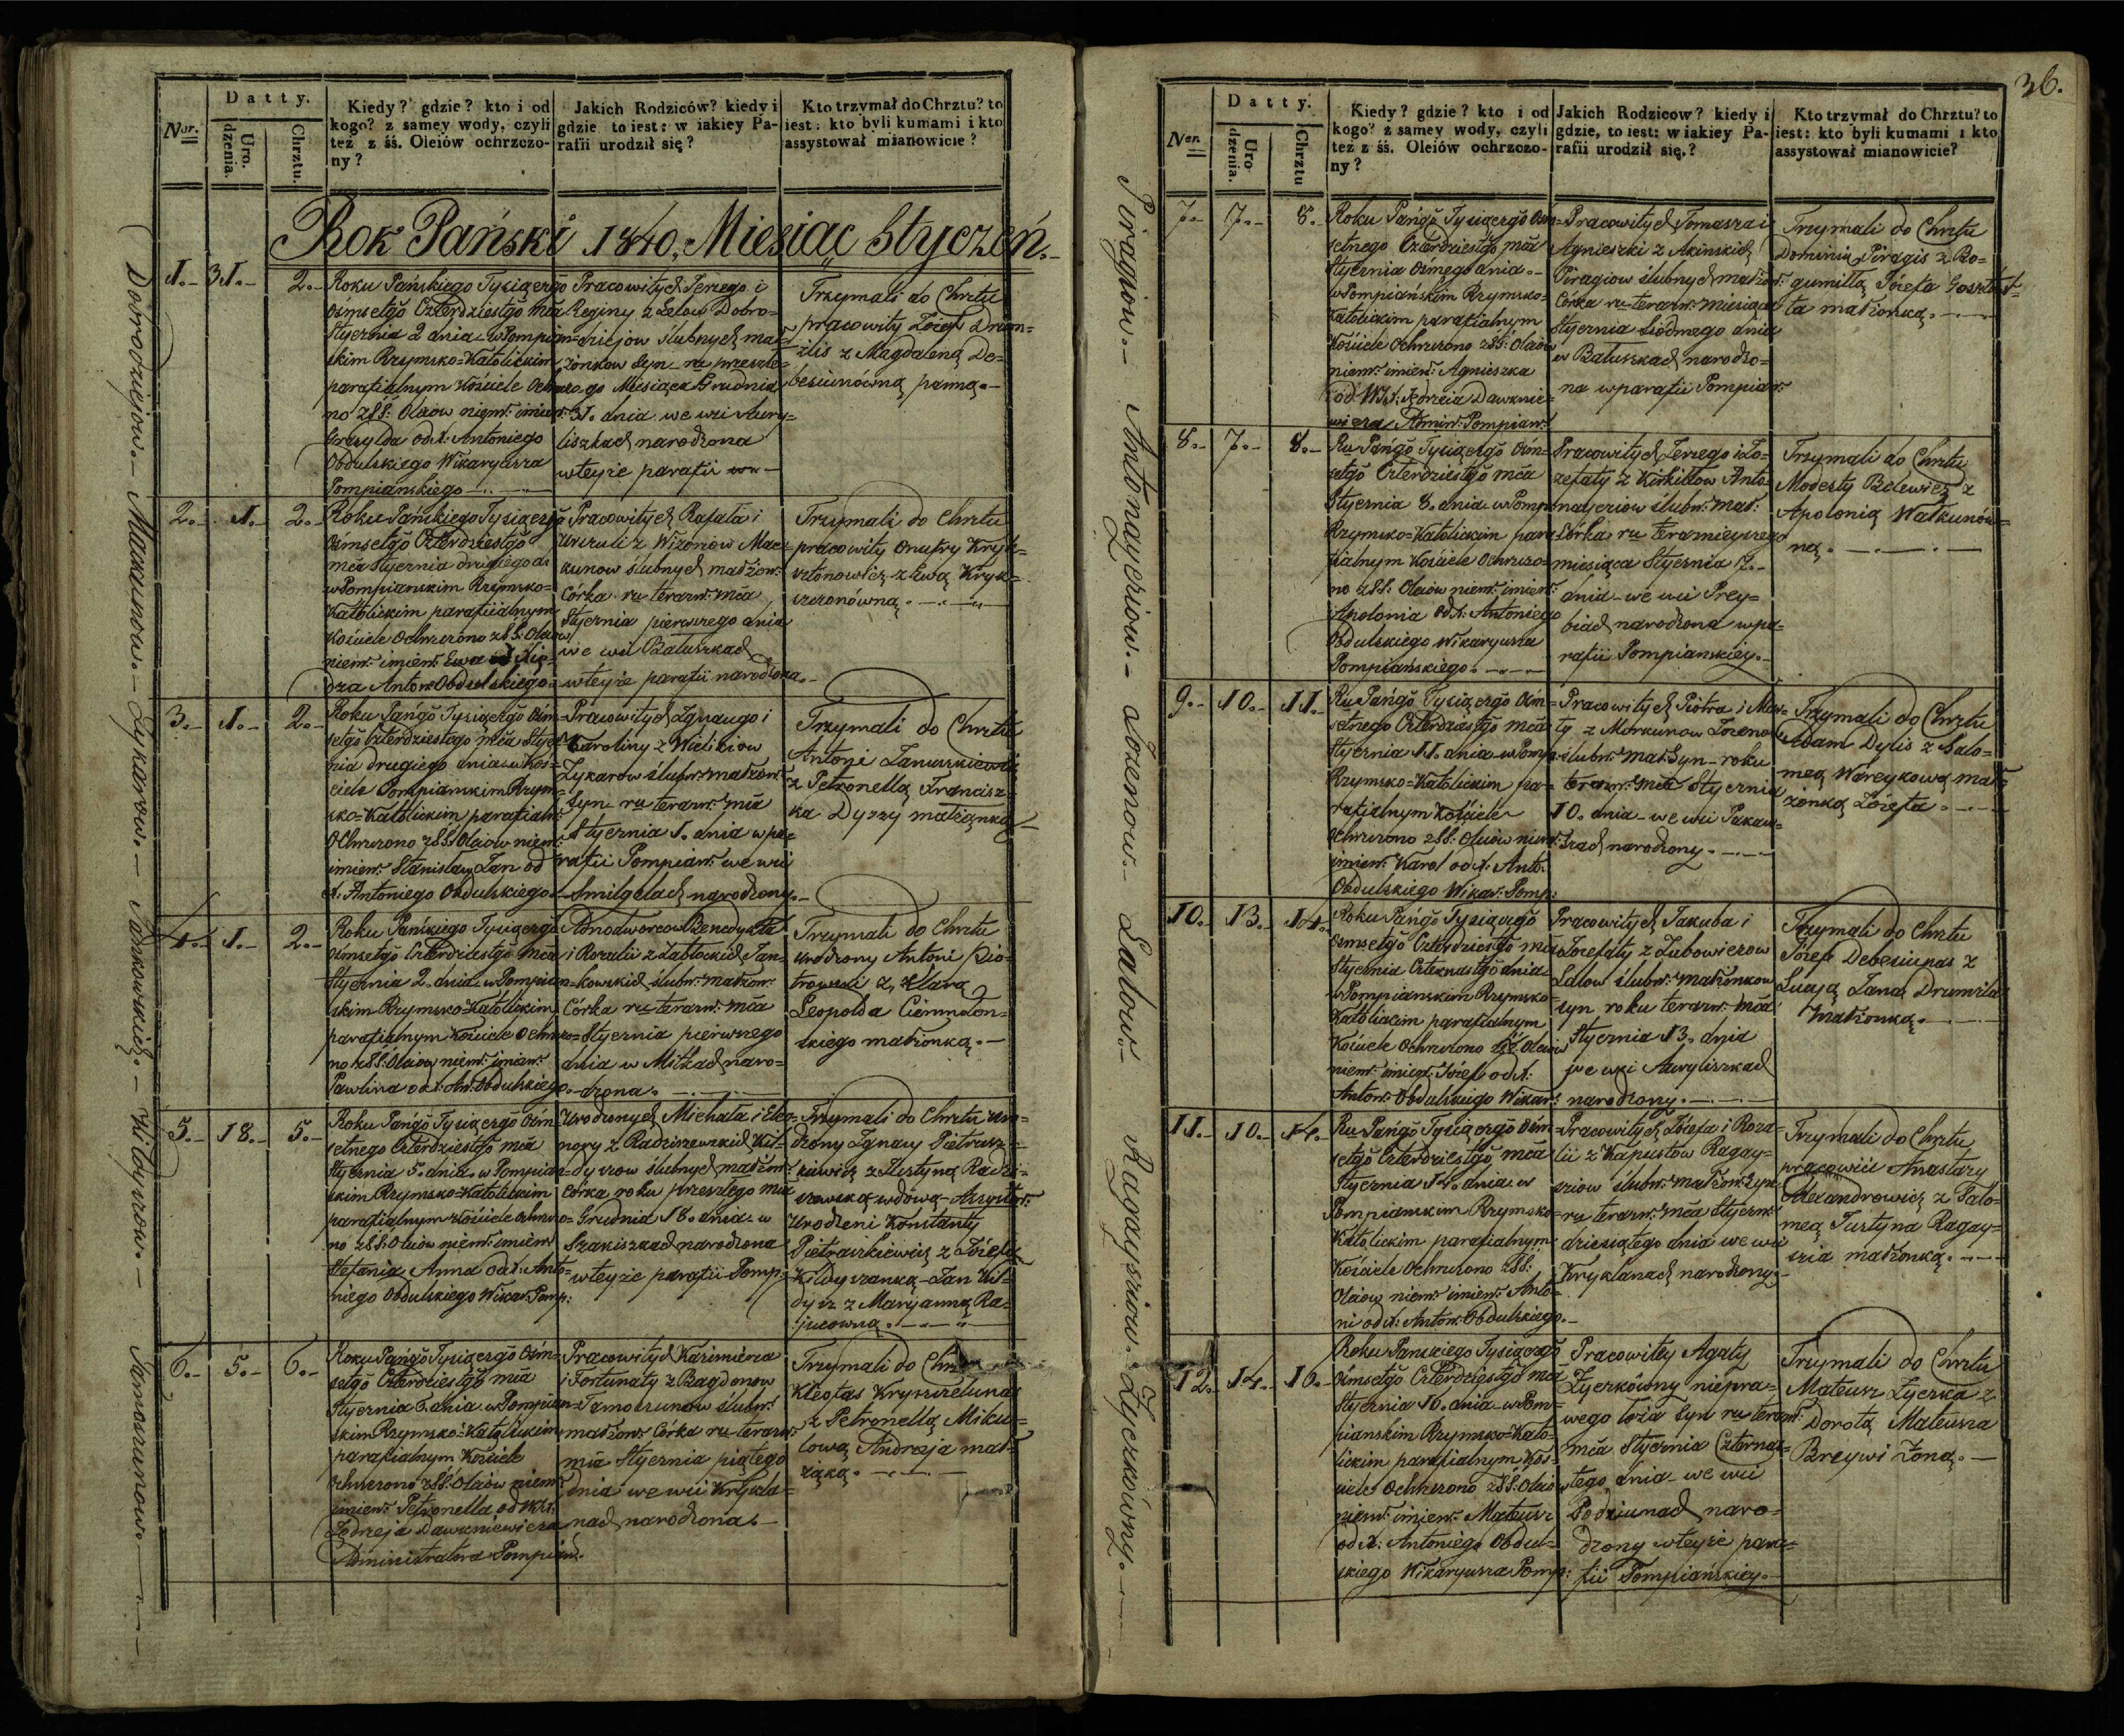 36.
Nor.
Datty.
Uro-
dzenia.
Chrztu.
Kiedy? gdzie? kto i od
kogo? z samey wody, czyli
też z śś. Oleiów ochrzczo-
ny?
Jakich Rodziców? kiedy i
gdzie, to iest: w iakiey Pa-
rafii urodził się?
Kto trzymał do Chrztu? to
iest: kto byli kumami i kto
assystował mianowicie?
Rok Pański 1840, Miesiąc Styczeń.
1. 31. 2.
Roku Pańskiego Tysiącgo
Ośmsetgo Czterdziestgo mca
Stycznia 2 dnia w Pompian-
skim Rzymsko=Katolickim
parafialnym Kościele Ochrzczo-
no z SS: Oleiów niem: imien:
Gryzylda od X: Antoniego
Obdulskiego Wikaryusza
Pompianskiego
Pracowitych Jerzego i
Reginy z Lelow Dobro-
dziejow ślubnych mał-
żonkow Syn ru przeszłe-
go Miesiąca Grudnia
31. dnia we wsi Awry-
liszkach narodzona
w teyże parafii
Trzymali do Chrztu
pracowity Józef Drum-
zlis z Magdaleną De-
besiunówną panną.
2. 1. 2.
Roku Pańskiego Tysiącgo
Ośmsetgo Czterdziestgo
mca Stycznia drugiego d:
w Pompianskim Rzymsko=
Katolickim parafialnym
Kościele Ochrzczono z SS: Oleiow
niem: imien: Ewa od Xię-
dza Anton: Obdulskiego
Pracowitych Rafała i
Urszuli z Wizoniow Mac-
kunow ślubnych małżon:
Córka ru teraz: mca
Stycznia pierwszego dnia
we wsi Batuszkach
w teyże parafii narodzona.
Trzymali do Chrztu
pracowity Onufry Kryk-
sztonowicz z Ewą Kryk-
szczonówną.
3. 1. 2.
Roku Pańgo Tysiącgo Ośm-
setgo Czterdziestego mca Stycz-
nia drugiego dnia w Koś-
ciele Pompianskim Rzym-
sko=Katolickim parafialn:
Ochrzczono z SS: Oleiow niem:
imien: Stanisław Jan od
X: Antoniego Obdulskiego
Pracowitych Ignacego i
Karoliny z Wieliczow
Zykarow ślubn: małżon:
Syn ru teraz: mca
Stycznia 1. dnia w pa-
rafii Pompian: we wsi
Smilgelach narodzony.
Trzymali do Chrztu
Antoni Januszkiewicz
z Petronellą Francisz-
ka Dyrzy małżonką
4. 1. 2.
Roku Pańskiego Tysiącgo
Ośmsetgo Czterdziestgo mca
Stycznia 2. dnia w Pompian-
skim Rzymsko=Katolickim
parafialnym Kościele Ochrzczo-
no z SS: Oleiow niem: imien:
Pawlina od X: An: Obdulskiego
Adnodworcow Benedykta
i Rozalii z Zabłockich Jan-
kowskich ślubn: małżon:
Córka ru teraz: mca
Stycznia pierwszego
dnia w Miłżach naro-
dzona.
Trzymali do Chrztu
urodzony Antoni Pio-
trowski z Klarą
Leopolda Ciemnolon-
skiego małżonką.
5. 18. 5.
Roku Pańgo Tysiącgo Ośm-
setnego Czterdziestgo mca
Stycznia 5 dnia w Pompian-
skim Rzymsko=Katolickim
parafialnym Kościele Ochrzczo-
no z SS: Oleiow niem: imien:
Stefania Anna od X: Anto-
niego Obdulskiego Wikar: Pomp:
Urodzonych Michała i Eleo-
nory z Radziszewskich Kił-
dyszow ślubnych małżon:
Córka roku przeszłego mca
Grudnia 18. dnia w
Szakiszkach narodzona
w teyże parafii Pomp:
Trzymali do Chrztu uro-
dzony Ignacy Pietrasz-
kiewicz z Justyną Radzi-
szewską wdową - Assystor:
Urodzeni Konstanty
Pietraszkiewicz z Józefą
Kiłdyszanką - Jan Kił-
dysz z Maryanną Ra-
jucowną.
6. 5. 6.
Roku Pańgo Tysiącgo Ośm-
setgo Czterdziestgo mca
Stycznia 6. dnia w Pompian-
skim Rzymsko=Katolickim
parafialnym Kościele
Ochrzczono z SS: Oleiow niem:
imien: Petronella od WX:
Jędrzeja Dawkniewicza
Administratora Pompiań:
Pracowitych Kazimierza
i Fortunaty z Bagdonow
Tamoszunow ślubn:
małżon: Córka ru teraz:
mca Stycznia piątego
dnia we wsi Krykla-
nach narodzona.
Trzymali do Chrztu
Kleofas Krykszczeliunas
z Petronellą Miku-
lową Andrzeja mał-
żąką.
Dobrodziejow. - Mackunow. - Zykarow. - Jankowskich. - Kiłdyszow. - Tamoszunow.
Nor.
Datty.
Uro-
dzenia.
Chrztu
Kiedy? gdzie? kto i od
kogo? z samey wody, czyli
też z śś. Oleiów ochrzczo-
ny?
Jakich Rodzicow? kiedy i
gdzie, to iest: w iakiey Pa-
rafii urodził się.?
Kto trzymał do Chrztu? to
iest: kto byli kumami i kto
assystował mianowicie?
7. 7. 8.
Roku Pańgo Tysiącgo Ośm-
setnego Czterdziestgo mca
Stycznia Ośmego dnia.
w Pompiańskim Rzymsko=
Katolickim parafialnym
Kościele Ochrzczono z SS: Oleiow
niem: imien: Agnieszka
od WX: Jędrzeia Dawknie-
wicza Admin: Pompian:
Pracowitych Tomasza i
Agnieszki z Akinskich
Piragiow ślubnych małżon:
Córka ru teraz: miesiąca
Stycznia Siódmego dnia
w Batuszkach narodzo-
na w parafii Pompian:
Trzymali do Chrztu
Dominik Piragis z Bo-
gumiłłą Józefa Gosztow-
ta małżonką.
8. 7. 8.
Ru Pańgo Tysiącgo Ośm-
setgo Czterdziestgo mca
Stycznia 8. dnia w Pomp:
Rzymsko=Katolickim para-
fialnym Kościele Ochrzczo-
no z SS: Oleiow niem: imien:
Apolonia od X: Antoniego
Obdulskiego Wikaryusza
Pompianskiego.
Pracowitych Jerzego i Jo-
zefaty z Kirkiłłow Anto-
nayciow ślubn: mał:
Córka ru teraznieyszego
miesiąca Stycznia 7.
dnia we wsi Prey-
biach narodzona w pa-
rafii Pompianskiey.
Trzymali do Chrztu
Modesty Balewicz z
Apolonią Wałkunów-
ną.
9. 10. 11.
Ru Pańgo Tysiącgo Ośm-
setnego Czterdziestgo mca
Stycznia 11. dnia w Pomp:
Rzymsko=Katolickim pa-
rafialnym Kościele
Ochrzczono z SS: Oleiow niem:
imien: Karol od X: Anto:
Obdulskiego Wikar: Pomp:
Pracowitych Piotra i Mar-
ty z Morkunow Lozenow
ślubn: mał: Syn roku
teraz: mca Stycznia
10. dnia we wsi Pakau-
szach narodzony.
Trzymali do Chrztu
Adam Dylis z Salo-
meą Wareykową mał-
żonką Józefa.
10. 13. 14.
Roku Pańgo Tysiącgo
Ośmsetgo Czterdziestgo mca
Stycznia Czternastgo dnia
w Pompianskim Rzymsko=
Katolickim parafialnym
Kościele Ochrzczono SS: Oleiow
niem: imien: Józef od X:
Anton: Obdulskiego Wikar:
Pracowitych Jakuba i
Jozefaty z Zubowiczow
Lalow ślubn: małżonkow
syn roku teraz: mca
Stycznia 13. dnia
we wsi Awryliszkach
narodzony.
Trzymali do Chrztu
Józef Debesiunas z
Łucyą Jana Drumzla
małżonką.
11. 10. 14.
Ru Pańgo Tysiącgo Ośm-
setgo Czterdziestgo mca
Stycznia 14. dnia w
Pompianskim Rzymsko-
Katolickim parafialnym
Kościele Ochrzczono z SS:
Oleiow niem: imien: Anto-
ni od X: Anton: Obdulskiego.
Pracowitych Józefa i Roza-
lii z Kapustow Ragay-
sziow ślubn: małżon: Syn
ru teraz: mca Stycz:
dziesiątego dnia we wsi
Kryklanach narodzony
Trzymali do Chrztu
pracowici Anastazy
Alexandrowicz z Salo-
meą Justyna Ragay-
szia małżonką.
12. 14. 16.
Roku Panskiego Tysiącgo
Ośmsetgo Czterdziestgo mca
Stycznia 16. dnia w Pom-
pianskim Rzymsko=Kato-
lickim parafialnym Koś-
ciele Ochrzczono z SS: Oleio
niem: imien: Mateusz
od X: Antoniego Obdul-
skiego Wikaryusza Pomp:
Pracowitey Agaty
Zyerkówny niepra-
wego łoża Syn ru teraz:
mca Stycznia Czternas-
tego dnia we wsi
Podziunach naro-
dzony w teyże para-
fii Pompiańskiey.
Trzymali do Chrztu
Mateusz Zyerka z
Dorotą Mateusza
Breywi Żoną.
Piragiow. - Antonayciow. - Lozenow. - Lalow. - Ragaysziow. Zyerkówny.